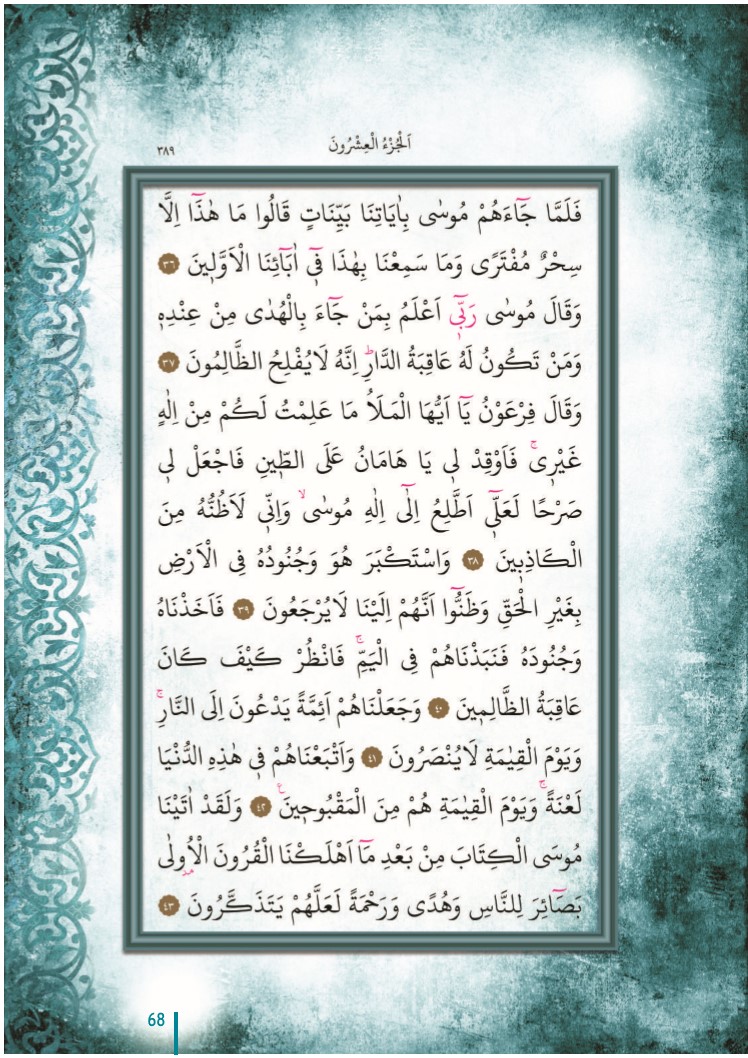 اَلْجُزْءُ الْعِشْرُونَ
٣٨٩
فَلَمَّا جَٓاءَهُمْ مُوسٰى بِاٰيَاتِنَا بَيِّنَاتٍ قَالُوا مَا هٰذَٓا اِلَّا
سِحْرٌ مُفْتَرًى وَمَا سَمِعْنَا بِهٰذَا ف۪ٓي اٰبَٓائِنَا الْاَوَّل۪ينَ ٣٦
وَقَالَ مُوسٰى رَبّ۪ٓي اَعْلَمُ بِمَنْ جَٓاءَ بِالْهُدٰى مِنْ عِنْدِه۪
وَمَنْ تَكُونُ لَهُ عَاقِبَةُ الدَّارِۜ اِنَّهُ لَايُفْلِحُ الظَّالِمُونَ ٣٧
وَقَالَ فِرْعَوْنُ يَٓا اَيُّهَا الْمَلَاُ مَا عَلِمْتُ لَكُمْ مِنْ اِلٰهٍ
غَيْر۪يۚ فَاَوْقِدْ ل۪ي يَا هَامَانُ عَلَى الطّ۪ينِ فَاجْعَلْ ل۪ي
صَرْحًا لَعَلّ۪ٓي اَطَّلِعُ اِلٰٓى اِلٰهِ مُوسٰىۙ وَاِنّ۪ي لَاَظُنُّهُ مِنَ
الْكَاذِب۪ينَ ٣٨ وَاسْتَكْبَرَ هُوَ وَجُنُودُهُ فِي الْاَرْضِ
بِغَيْرِ الْحَقِّ وَظَنُّٓوا اَنَّهُمْ اِلَيْنَا لَايُرْجَعُونَ ٣٩ فَاَخَذْنَاهُ
وَجُنُودَهُ فَنَبَذْنَاهُمْ فِي الْيَمِّۚ فَانْظُرْ كَيْفَ كَانَ
عَاقِبَةُ الظَّالِم۪ينَ ٤٠ وَجَعَلْنَاهُمْ اَئِمَّةً يَدْعُونَ اِلَى النَّارِۚ
وَيَوْمَ الْقِيٰمَةِ لَايُنْصَرُونَ ٤١ وَاَتْبَعْنَاهُمْ ف۪ي هٰذِهِ الدُّنْيَا
لَعْنَةًۚ وَيَوْمَ الْقِيٰمَةِ هُمْ مِنَ الْمَقْبُوح۪ينَ۟ ٤٢ وَلَقَدْ اٰتَيْنَا
مُوسَى الْكِتَابَ مِنْ بَعْدِ مَٓا اَهْلَكْنَا الْقُرُونَ الْاُو۫لٰى
بَصَٓائِرَ لِلنَّاسِ وَهُدًى وَرَحْمَةً لَعَلَّهُمْ يَتَذَكَّرُونَ ٤٣
68